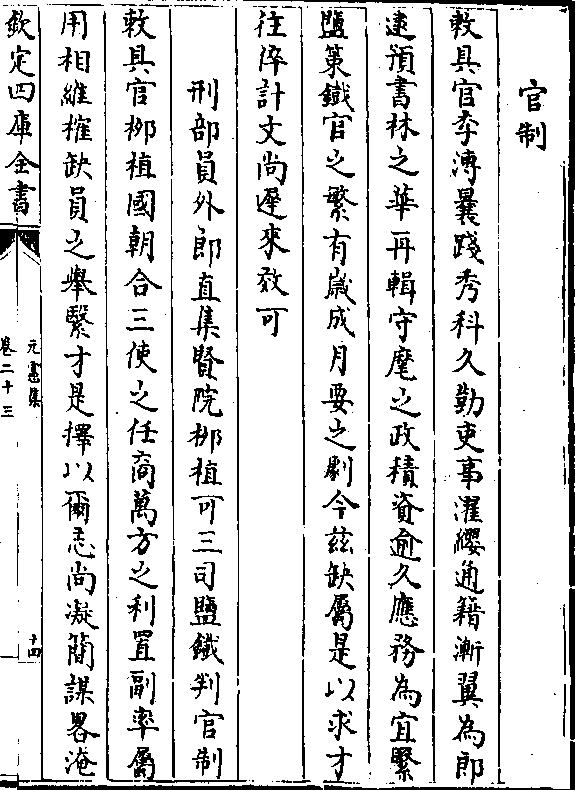 官制
敕具官李漙曩踐秀科久勤吏事濯纓通籍漸翼為郎
逮預書林之華再輯守麾之政積資逾久應務為宜緊
鹽筴鐵官之繁有歲成月要之劇今茲缺屬是以求才
往倅計文尚遲來效可
刑部員外郎直集賢院栁植可三司鹽鐵判官制
敕具官栁植國朝合三使之任商萬方之利置副率屬
用相維榷缺員之舉繄才是擇以爾志尚凝簡謀畧淹
欽定四庫全書
元憲集
卷二十三
十四